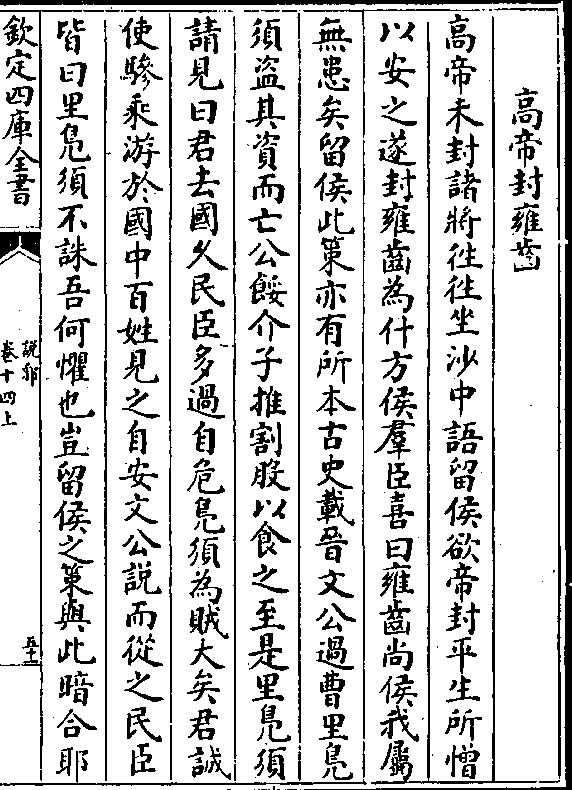 高帝封雍齒
高帝未封諸將徃徃坐沙中語留侯欲帝封平生所憎
以安之遂封雍齒為什方侯羣臣喜曰雍齒尚侯我屬
無患矣留侯此策亦有所本古史載晉文公過曹里鳬
須盜其資而亡公餒介子推割股以食之至是里鳬須
請見曰君去國久民臣多過自危鳬須為賊大矣君誠
使驂乘游於國中百姓見之自安文公説而從之民臣
皆曰里鳬須不誅吾何懼也豈留侯之策與此暗合耶
欽定四庫全書
說郛
卷十四上
五十二